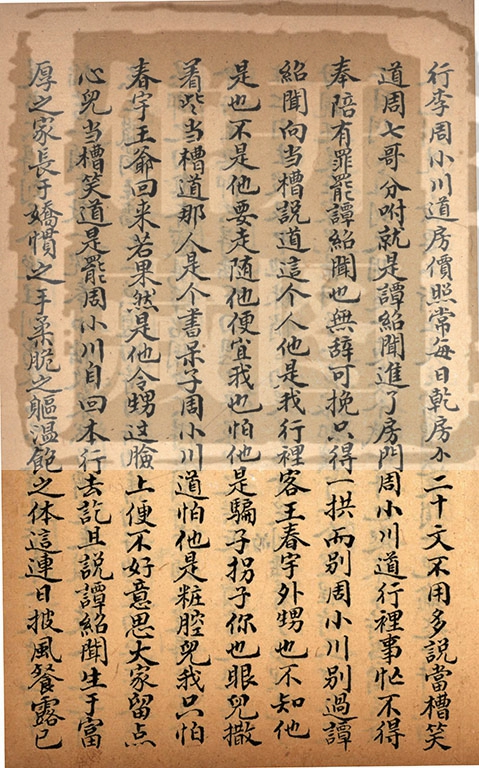 行李周小川道房價照常每日乾房小二十文不用多說當槽笑
道周七哥分咐就是譚紹聞進了房門周小川道行裡事忙不得
奉陪有罪罷譚紹聞也無辞可挽只得一拱而別周小川別過譚
紹聞向当槽説道這个人他是我行裡客王春宇外甥也不知他
是也不是他要走随他便宜我也怕他是騙子拐子你也眼兒撒
着些当槽道那人是个書呆子周小川道怕他是粧腔兒我只怕
春宇王爺回来若果然是他令甥过臉上便不好意思大家留点
心兒当槽笑道是罷周小川自回本行去訖且説譚紹聞生于富
厚之家長于嬌慣之手柔脆之軀温飽之体這連日披風餐露已